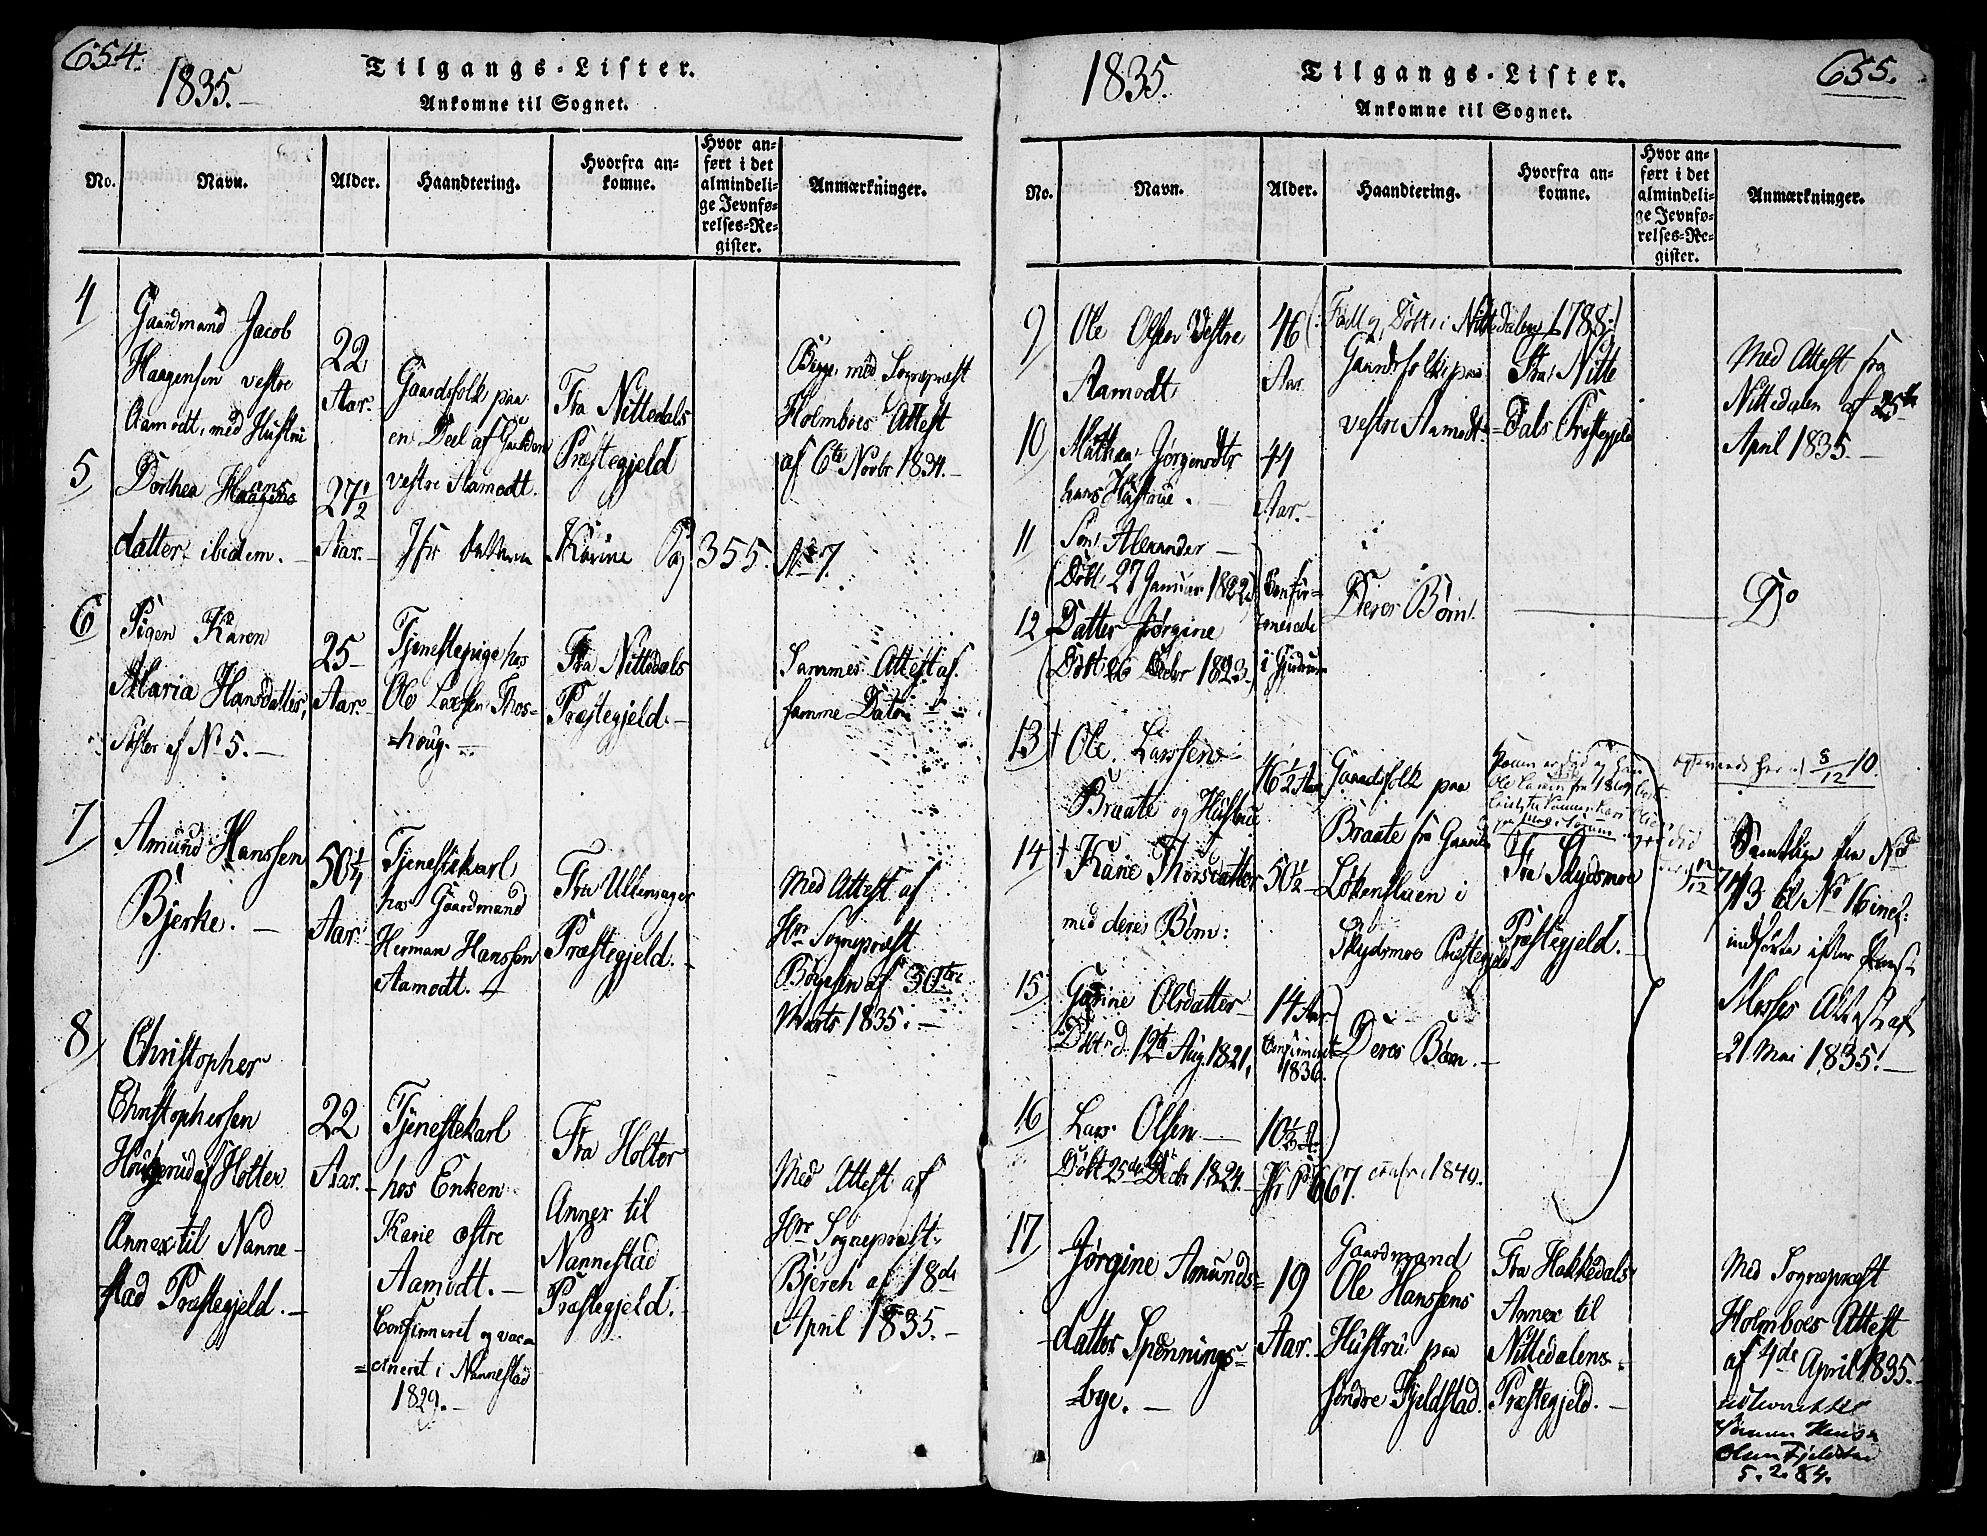 654.
1835.
Tilgangs-Lister.
Ankomne til Sognet.
No.
Navn.
Alder.
Haandtering.
Hvorfra an=
komne.
Hvor an=
ført i det
almindeli=
ge Jevnfø=
relses=Re=
gister.
Anmærkninger.
4
Gaardmand Jacob
Haagensen vestre
Aamodt, med Hustru
22
Aar.
Gaardsfolk paa
en Deel af Gaarden
vestre Aamodt.
Fra Nittedals
Præstegjeld
Begge med Sognepræst
Holmboes Attest
af 6te Novbr 1834.
5
Dorthea Hans
datter ibidem.
27 1/2
Aar.
Jfr Datteren Karine Pag 355. No 7.
6
Pigen Karen
Maria Hansdatter,
Søster af No 5.
25
Aar.
Tjenestepige hos
Ole Larsen Thos=
=houg.
Fra Nittedals
Præstegjeld.
Sammes Attest af
samme Dato.
7
Amund Hanssen
Bjerke.
50 1/4
Aar.
Tjenestekarl
hos Gaardmand
Herman Hanssen
Aamodt.
Fra Ullensager
Præstegjeld.
Med Attest af
Hrr Sognepræst
af 30te
Marts 1835.
8
Christopher
Christophersen
af Holter
Annex til Nanne=
stad Præstegjeld.
22
Aar.
Tjenestekarl
hos Enken
Karie østre
Aamodt.
Confirmeret og vac=
=cineret i Nannestad
1829.
Fra Holter
Annex til
Nannestad
Præstegjeld.
Med Attest af
Hrr Sognepræst
Bjerch af 18de
April 1835.
655.
1835.
Tilgangs-Lister.
Ankomne til Sognet.
No.
Navn.
Alder.
Haandtering.
Hvorfra an=
komne.
Hvor an=
ført i det
almindeli=
ge Jevnfø=
relses=Re=
gister.
Anmærkninger.
9
Ole Olsen Vestre
Aamodt
46
Aar.
(Født og Døbt i Nittedalen 1788.)
Gaardsfolk paa
vestre Aamodt
Fra Nitte
=Dals Præstegjeld
Med Attest fra
Nittedalen af 25de
April 1835.
10
Mathea Jørgensdtr
hans Hustrue.
44
Aar.
11
Søn Alexander
(Døbt 27 Januar 1822)
Confir=
12
Datter Jørgine
(Døbt 26 Decbr 1823.)
=merede
i Gjerdrum
Deres Børn.
Do
13
Ole Larssen
Braate og Hustrue
46 1/2 Aar
Gaardsfolk paa
Braate fra Gaarden
Løkenstuen i
Skydsmoe Præstegjeld
Fra Skydsmoe
Præstegjeld.
8/12 10.
14
Karie Thorsdatter
med deres Børn:
50 1/2
Samtlige fra No
13 til No 16 incl:
indførte efter Præst
Moses Attest af
21 Mai 1835.
15
Olsdatter
Døbt d. 12te Aug. 1821,
14 Aar
Confirmeret
1836.
Deres Børn.
16
Lars Olsen
Døbt 25de Decbr 1824.
10 1/2 A.
Jfr Pag 667. 1840.
17
Jørgine Amunds=
datter Spennings=
=bye.
19
Aar.
Gaardmand
Ole Hanssens
Hustru paa
søndre Fjeldstad.
Fra Hakkedals
Annex til
Nittedalens
Præstegjeld.
Med Sognepræst
Holmboes Attest
af 4de April 1835.
Olsen Fjeldstad
5.2.84.